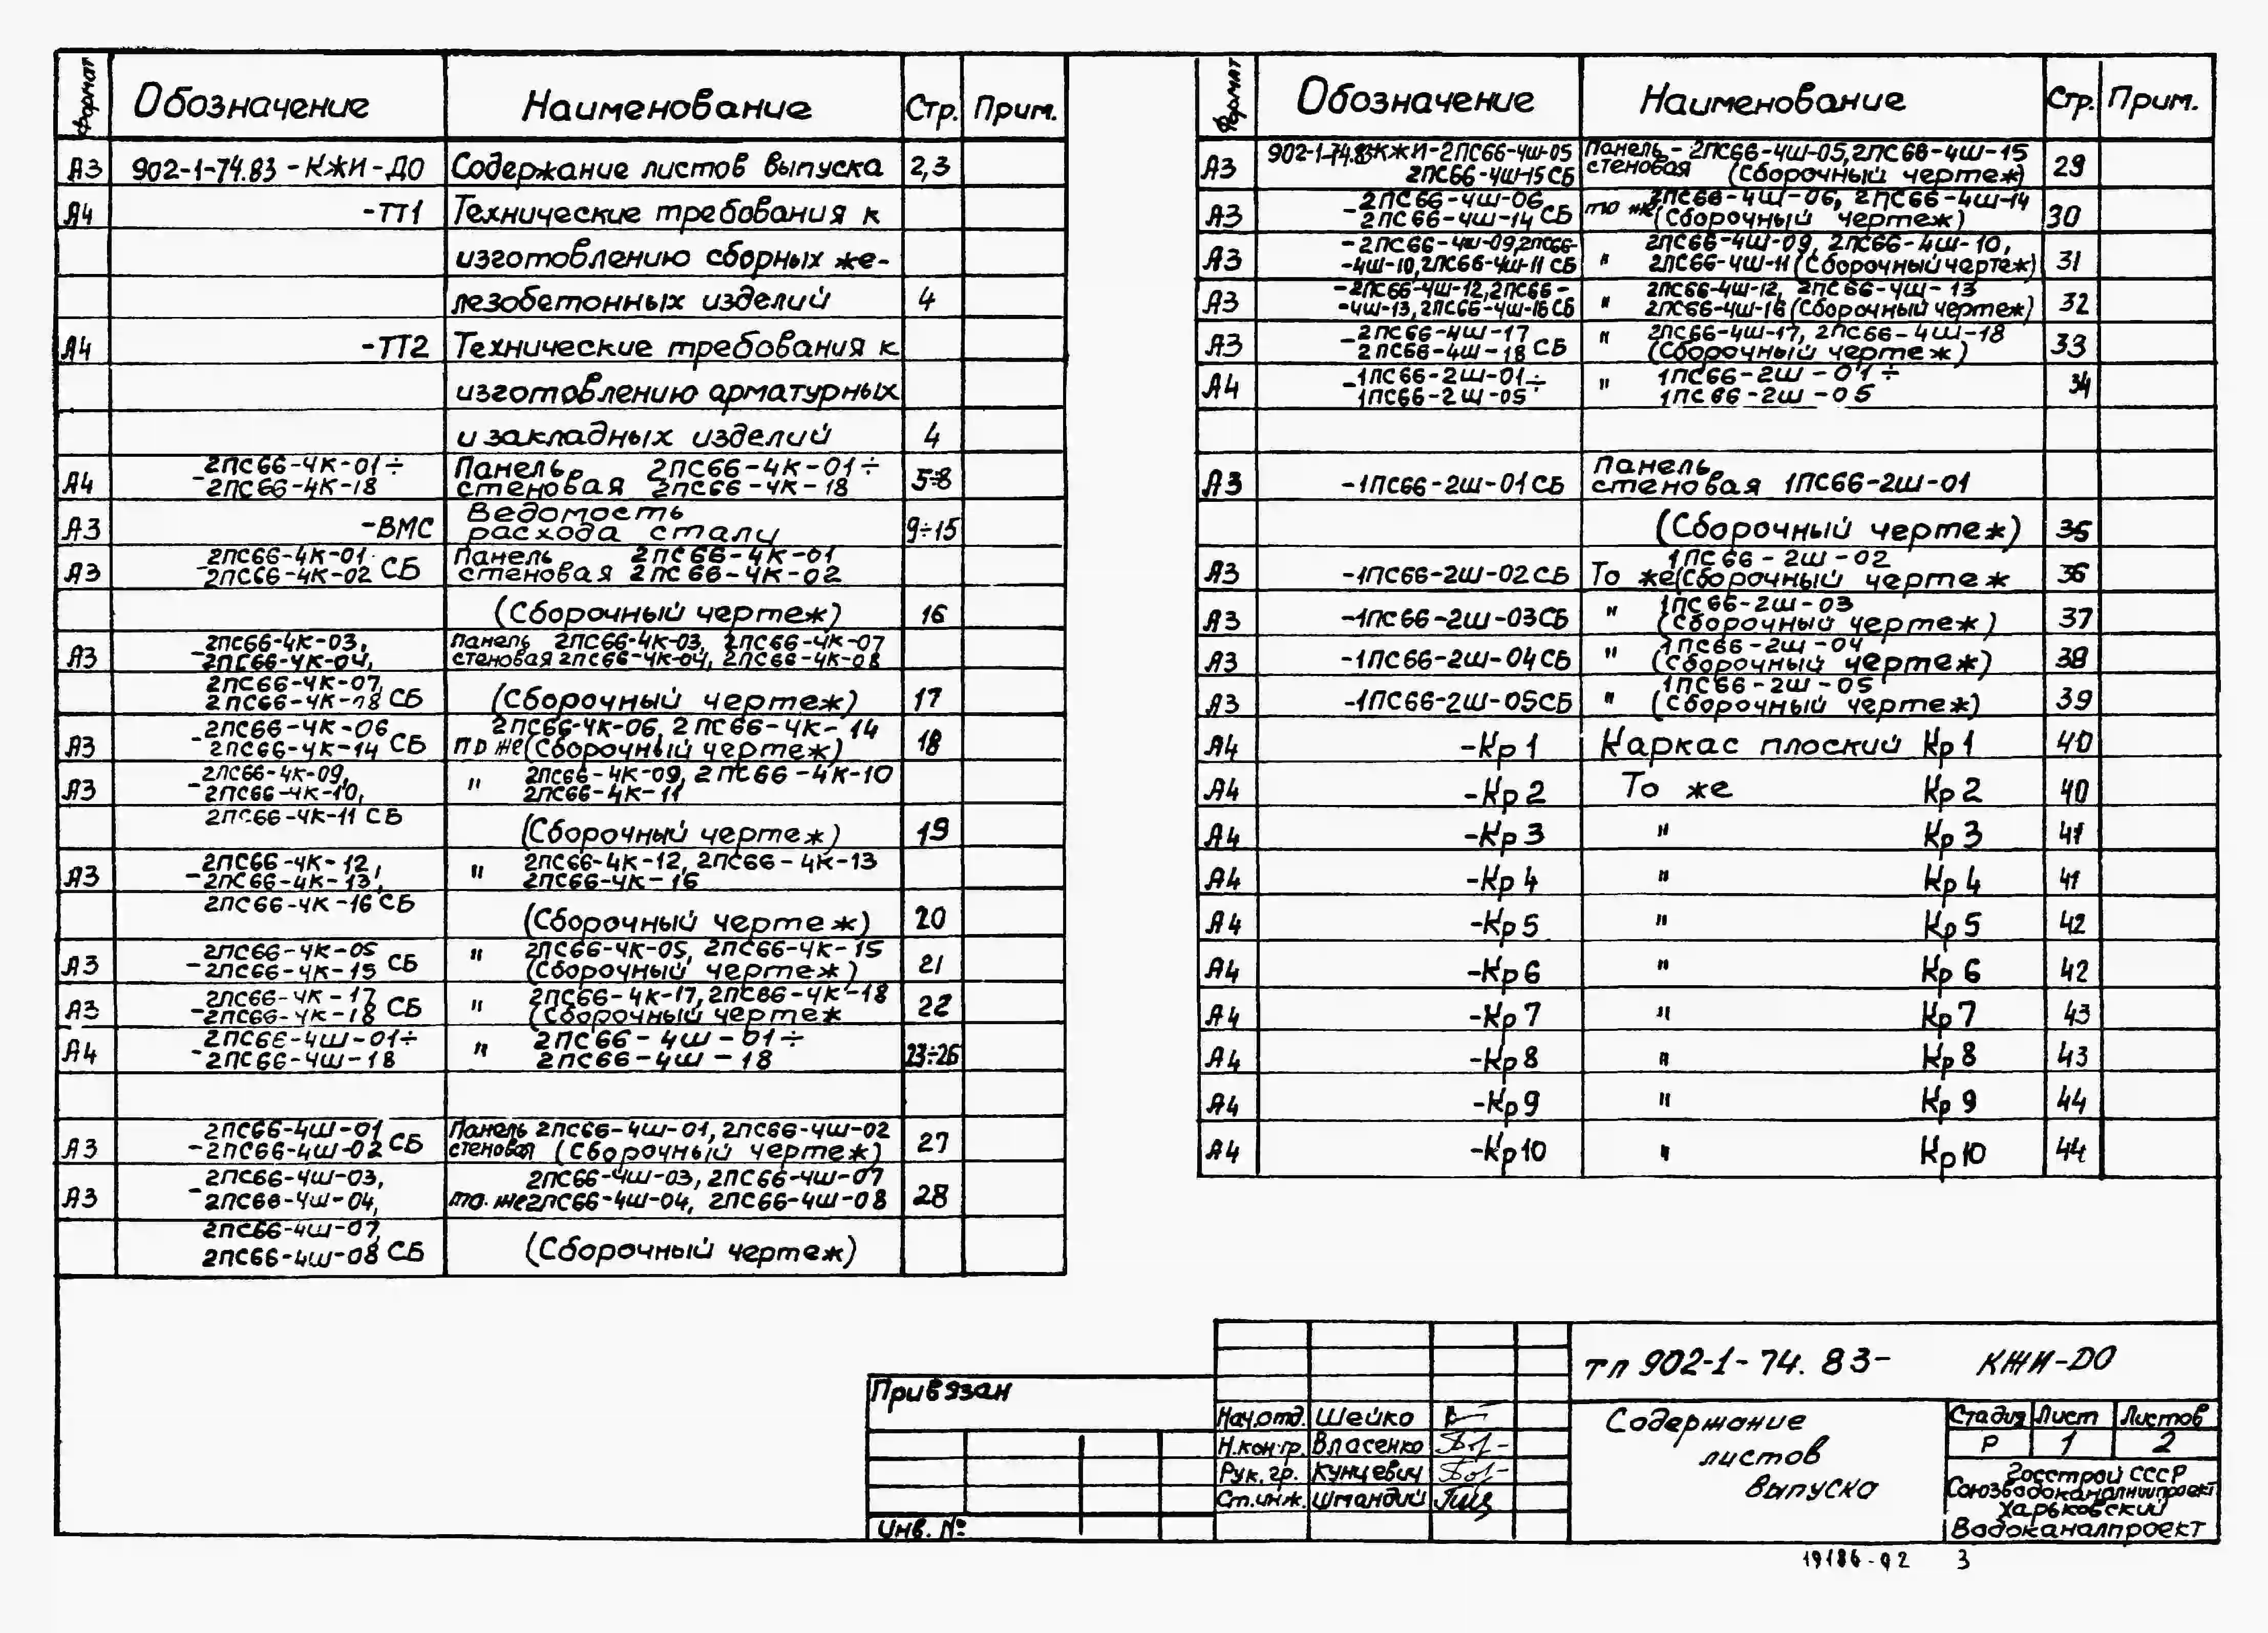 Формат Обозначение Наименование Стр. Прим.
А3 902-1-74.83-КЖИ-ДО Содержание листов выпуска 2,3
А4 -ТТ1 Технические требования к
изготовлению сборных же-
лезобетонных изделий 4
А4 -ТТ2 Технические требования к
изготовлению арматурных
и закладных изделий 4
2ПС66-4К-01÷ Панель 2ПС66-4К-01÷
А4 -2ПС66-4К-18 стеновая 2ПС66-4К-18 5÷8
Ведомость
А3 -ВМС расхода стали 9÷15
2ПС66-4К-01 Панель 2ПС66-4К-01
А3 -2ПС66-4К-02 СБ стеновая 2ПС66-4К-02
(Сборочный чертеж) 16
2ПС66-4К-03, Панель 2ПС66-4К-03, 2ПС66-4К-07
А3 -2ПС66-4К-04, стеновая 2ПС66-4К-04, 2ПС66-4К-08
2ПС66-4К-07,
2ПС66-4К-08 СБ (Сборочный чертеж) 17
2ПС66-4К-06 2ПС66-4К-06, 2ПС66-4К-14
А3 -2ПС66-4К-14 СБ то же (Сборочный чертеж) 18
2ПС66-4К-09, " 2ПС66-4К-09, 2ПС66-4К-10
А3 -2ПС66-4К-10, 2ПС66-4К-11
2ПС66-4К-11 СБ
(Сборочный чертеж) 19
2ПС66-4К-12, " 2ПС66-4К-12, 2ПС66-4К-13
А3 -2ПС66-4К-13, 2ПС66-4К-16
2ПС66-4К-16 СБ
(Сборочный чертеж) 20
2ПС66-4К-05 " 2ПС66-4К-05, 2ПС66-4К-15
А3 -2ПС66-4К-15 СБ (Сборочный чертеж) 21
2ПС66-4К-17 " 2ПС66-4К-17, 2ПС66-4К-18
А3 -2ПС66-4К-18 СБ (Сборочный чертеж 22
2ПС66-4Ш-01÷ " 2ПС66-4Ш-01÷
А4 -2ПС66-4Ш-18 2ПС66-4Ш-18 23÷26
2ПС66-4Ш-01 Панель 2ПС66-4Ш-01, 2ПС66-4Ш-02
А3 -2ПС66-4Ш-02 СБ стеновая (Сборочный чертеж) 27
-2ПС66-4Ш-03, 2ПС66-4Ш-03, 2ПС66-4Ш-07
А3 2ПС66-4Ш-04, то же 2ПС66-4Ш-04, 2ПС66-4Ш-08 28
2ПС66-4Ш-07,
2ПС66-4Ш-08 СБ (Сборочный чертеж)
Формат Обозначение Наименование Стр. Прим.
902-1-74.83КЖИ-2ПС66-4Ш-05 Панель - 2ПС66-4Ш-05, 2ПС66-4Ш-15
А3 2ПС66-4Ш-15 СБ стеновая (Сборочный чертеж) 29
-2ПС66-4Ш-06 2ПС66-4Ш-06, 2ПС66-4Ш-14
А3 2ПС66-4Ш-14 СБ то же (Сборочный чертеж) 30
-2ПС66-4Ш-09, 2ПС66- 2ПС66-4Ш-09, 2ПС66-4Ш-10,
А3 -4Ш-10, 2ПС66-4Ш-11 СБ " 2ПС66-4Ш-11 (Сборочный чертеж) 31
-2ПС66-4Ш-12, 2ПС66- 2ПС66-4Ш-12, 2ПС66-4Ш-13
А3 -4Ш-13, 2ПС66-4Ш-16 СБ " 2ПС66-4Ш-16 (Сборочный чертеж) 32
-2ПС66-4Ш-17 " 2ПС66-4Ш-17, 2ПС66-4Ш-18
А3 2ПС66-4Ш-18 СБ (Сборочный чертеж) 33
-1ПС66-2Ш-01÷ " 1ПС66-2Ш-01÷
А4 1ПС66-2Ш-05 1ПС66-2Ш-05 34
Панель
А3 -1ПС66-2Ш-01 СБ стеновая 1ПС66-2Ш-01
(Сборочный чертеж) 35
1ПС66-2Ш-02
А3 -1ПС66-2Ш-02 СБ То же (Сборочный чертеж 36
" 1ПС66-2Ш-03
А3 -1ПС66-2Ш-03СБ (Сборочный чертеж) 37
1ПС66-2Ш-04
А3 -1ПС66-2Ш-04СБ " (Сборочный чертеж) 38
1ПС66-2Ш-05
А3 -1ПС66-2Ш-05СБ " (Сборочный чертеж) 39
А4 -Кр1 Каркас плоский Кр1 40
А4 -Кр2 То же Кр2 40
А4 -Кр3 " Кр3 41
А4 -Кр4 " Кр4 41
А4 -Кр5 " Кр5 42
А4 -Кр6 " Кр6 42
А4 -Кр7 " Кр7 43
А4 -Кр8 " Кр8 43
А4 -Кр9 " Кр9 44
А4 -Кр10 " Кр10 44
Привязан
Инв. №
тп 902-1-74.83- КЖИ-ДО
Нач.отд. Шейко
Н.контр. Власенко
Рук.гр. Кунцевич
Ст.инж. Шмандий
Содержание
листов
выпуска
Стадия Лист Листов
Р 1 2
Госстрой СССР
Союзводоканалниипроект
Харьковский
Водоканалпроект
19186-02 3